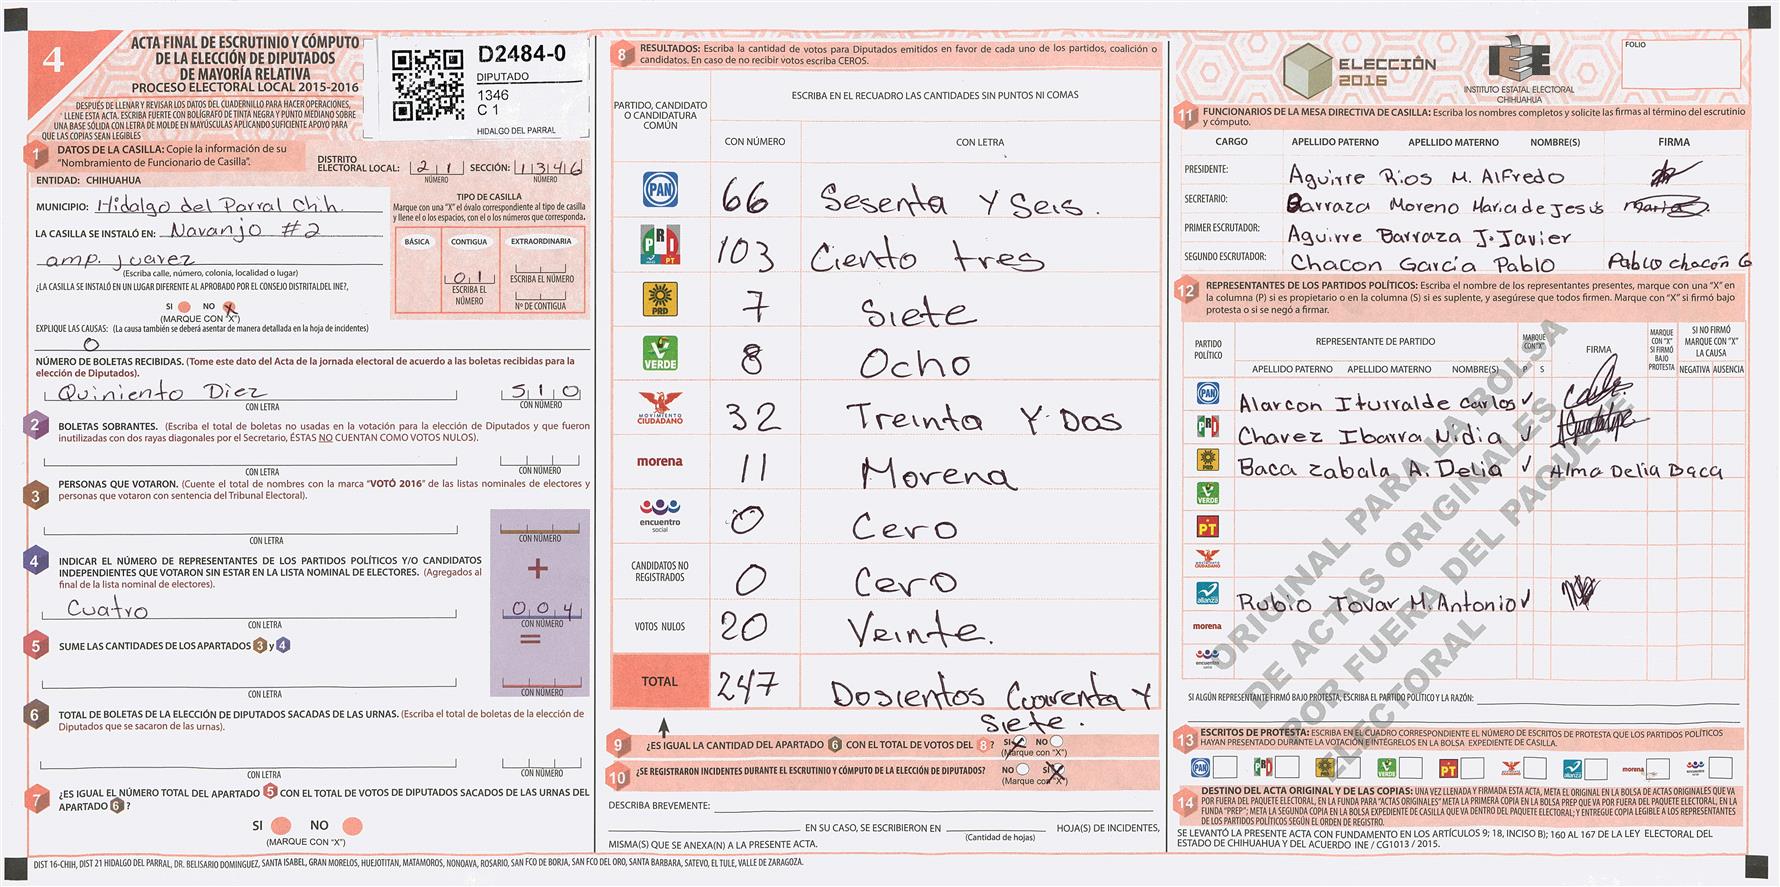 4
ACTA FINAL DE ESCRUTINIO Y CÓMPUTO
DE LA ELECCIÓN DE DIPUTADOS
DE MAYORÍA RELATIVA
PROCESO ELECTORAL LOCAL 2015-2016
DESPUÉS DE LLENAR Y REVISAR LOS DATOS DEL CUADERNILLO PARA HACER OPERACIONES,
LLENE ESTA ACTA. ESCRIBA FUERTE CON BOLÍGRAFO DE TINTA NEGRA Y PUNTO MEDIANO SOBRE
UNA BASE SÓLIDA CON LETRA DE MOLDE EN MAYÚSCULAS APLICANDO SUFICIENTE APOYO PARA
QUE LAS COPIAS SEAN LEGIBLES
D2484-0
DIPUTADO
1346
C 1
HIDALGO DEL PARRAL
1 DATOS DE LA CASILLA: Copie la información de su
"Nombramiento de Funcionario de Casilla".
DISTRITO
ELECTORAL LOCAL: 21 SECCIÓN: 1346
NÚMERO NÚMERO
ENTIDAD: CHIHUAHUA
MUNICIPIO: Hidalgo del Parral Chih.
LA CASILLA SE INSTALÓ EN: Navanjo #2
amp. juarez
(Escriba calle, número, colonia, localidad o lugar)
¿LA CASILLA SE INSTALÓ EN UN LUGAR DIFERENTE AL APROBADO POR EL CONSEJO DISTRITAL DEL INE?,
SI NO X
(MARQUE CON "X")
EXPLIQUE LAS CAUSAS: (La causa también se deberá asentar de manera detallada en la hoja de incidentes)
0
TIPO DE CASILLA
Marque con una "X" el óvalo correspondiente al tipo de casilla
y llene el o los espacios, con el o los números que corresponda.
BÁSICA CONTIGUA EXTRAORDINARIA
01
ESCRIBA EL NÚMERO
ESCRIBA EL NÚMERO
Nº DE CONTIGUA
NÚMERO DE BOLETAS RECIBIDAS. (Tome este dato del Acta de la jornada electoral de acuerdo a las boletas recibidas para la
elección de Diputados).
Quiniento Diez 510
CON LETRA CON NÚMERO
2 BOLETAS SOBRANTES. (Escriba el total de boletas no usadas en la votación para la elección de Diputados y que fueron
inutilizadas con dos rayas diagonales por el Secretario, ÉSTAS NO CUENTAN COMO VOTOS NULOS).
CON LETRA CON NÚMERO
3 PERSONAS QUE VOTARON. (Cuente el total de nombres con la marca "VOTÓ 2016" de las listas nominales de electores y
personas que votaron con sentencia del Tribunal Electoral).
CON LETRA CON NÚMERO
+
4 INDICAR EL NÚMERO DE REPRESENTANTES DE LOS PARTIDOS POLÍTICOS Y/O CANDIDATOS
INDEPENDIENTES QUE VOTARON SIN ESTAR EN LA LISTA NOMINAL DE ELECTORES. (Agregados al
final de la lista nominal de electores).
Cuatro 004
CON LETRA CON NÚMERO
=
5 SUME LAS CANTIDADES DE LOS APARTADOS 3 y 4
CON LETRA CON NÚMERO
6 TOTAL DE BOLETAS DE LA ELECCIÓN DE DIPUTADOS SACADAS DE LAS URNAS. (Escriba el total de boletas de la elección de
Diputados que se sacaron de las urnas).
CON LETRA CON NÚMERO
7 ¿ES IGUAL EL NÚMERO TOTAL DEL APARTADO 5 CON EL TOTAL DE VOTOS DE DIPUTADOS SACADOS DE LAS URNAS DEL
APARTADO 6 ?
SI NO
(MARQUE CON "X")
DIST 16-CHIH, DIST 21 HIDALGO DEL PARRAL, DR. BELISARIO DOMINGUEZ, SANTA ISABEL, GRAN MORELOS, HUEJOTITAN, MATAMOROS, NONOAVA, ROSARIO, SAN FCO DE BORJA, SAN FCO DEL ORO, SANTA BARBARA, SATEVO, EL TULE, VALLE DE ZARAGOZA.
8 RESULTADOS: Escriba la cantidad de votos para Diputados emitidos en favor de cada uno de los partidos, coalición o
candidatos. En caso de no recibir votos escriba CEROS.
PARTIDO, CANDIDATO
O CANDIDATURA
COMÚN
ESCRIBA EN EL RECUADRO LAS CANTIDADES SIN PUNTOS NI COMAS
CON NÚMERO CON LETRA
PAN 66 Sesenta Y Seis.
PRI PT 103 Ciento tres
PRD 7 Siete
VERDE 8 Ocho
MOVIMIENTO CIUDADANO 32 Treinta Y Dos
morena 11 Morena
encuentro social 0 Cero
CANDIDATOS NO REGISTRADOS 0 Cero
VOTOS NULOS 20 Veinte.
TOTAL 247 Dosientos Cuarenta Y
Siete.
9 ¿ES IGUAL LA CANTIDAD DEL APARTADO 6 CON EL TOTAL DE VOTOS DEL 8 ? SI X NO
(Marque con "X")
10 ¿SE REGISTRARON INCIDENTES DURANTE EL ESCRUTINIO Y CÓMPUTO DE LA ELECCIÓN DE DIPUTADOS? NO SI X
(Marque con "X")
DESCRIBA BREVEMENTE:
EN SU CASO, SE ESCRIBIERON EN HOJA(S) DE INCIDENTES,
(Cantidad de hojas)
MISMA(S) QUE SE ANEXA(N) A LA PRESENTE ACTA.
ELECCIÓN
2016
IEE
INSTITUTO ESTATAL ELECTORAL
CHIHUAHUA
FOLIO
11 FUNCIONARIOS DE LA MESA DIRECTIVA DE CASILLA: Escriba los nombres completos y solicite las firmas al término del escrutinio
y cómputo.
CARGO APELLIDO PATERNO APELLIDO MATERNO NOMBRE(S) FIRMA
PRESIDENTE: Aguirre Rios M. Alfredo
SECRETARIO: Barraza Moreno Maria de Jesus
PRIMER ESCRUTADOR: Aguirre Barraza J. Javier
SEGUNDO ESCRUTADOR: Chacon García Pablo Pablo chacon G
12 REPRESENTANTES DE LOS PARTIDOS POLÍTICOS: Escriba el nombre de los representantes presentes, marque con una "X" en
la columna (P) si es propietario o en la columna (S) si es suplente, y asegúrese que todos firmen. Marque con "X" si firmó bajo
protesta o si se negó a firmar.
PARTIDO POLÍTICO
REPRESENTANTE DE PARTIDO
APELLIDO PATERNO APELLIDO MATERNO NOMBRE(S)
MARQUE CON "X"
P S
FIRMA
MARQUE CON "X" SI FIRMÓ BAJO PROTESTA
SI NO FIRMÓ MARQUE CON "X" LA CAUSA
NEGATIVA AUSENCIA
PAN Alarcon Iturralde Carlos ✓
PRI Chavez Ibarra Nidia ✓
PRD Baca zabala A. Delia ✓ Alma Delia Baca
VERDE
PT
MOVIMIENTO CIUDADANO
alianza Rubio Tovar M. Antonio ✓
morena
encuentro social
ORIGINAL PARA LA BOLSA
DE ACTAS ORIGINALES
POR FUERA DEL PAQUETE
ELECTORAL
SI ALGÚN REPRESENTANTE FIRMÓ BAJO PROTESTA, ESCRIBA EL PARTIDO POLÍTICO Y LA RAZÓN:
13 ESCRITOS DE PROTESTA: ESCRIBA EN EL CUADRO CORRESPONDIENTE EL NÚMERO DE ESCRITOS DE PROTESTA QUE LOS PARTIDOS POLÍTICOS
HAYAN PRESENTADO DURANTE LA VOTACIÓN E INTÉGRELOS EN LA BOLSA EXPEDIENTE DE CASILLA.
PAN PRI PRD VERDE PT MOVIMIENTO CIUDADANO alianza morena encuentro social
14 DESTINO DEL ACTA ORIGINAL Y DE LAS COPIAS: UNA VEZ LLENADA Y FIRMADA ESTA ACTA, META EL ORIGINAL EN LA BOLSA DE ACTAS ORIGINALES QUE VA
POR FUERA DEL PAQUETE ELECTORAL, EN LA FUNDA PARA "ACTAS ORIGINALES" META LA PRIMERA COPIA EN LA BOLSA PREP QUE VA POR FUERA DEL PAQUETE ELECTORAL, EN LA
FUNDA "PREP"; META LA SEGUNDA COPIA EN LA BOLSA EXPEDIENTE DE CASILLA QUE VA DENTRO DEL PAQUETE ELECTORAL; Y ENTREGUE COPIA LEGIBLE A LOS REPRESENTANTES
DE LOS PARTIDOS POLÍTICOS SEGÚN EL ORDEN DE REGISTRO.
SE LEVANTÓ LA PRESENTE ACTA CON FUNDAMENTO EN LOS ARTÍCULOS 9; 18, INCISO B); 160 AL 167 DE LA LEY ELECTORAL DEL
ESTADO DE CHIHUAHUA Y DEL ACUERDO INE / CG1013 / 2015.